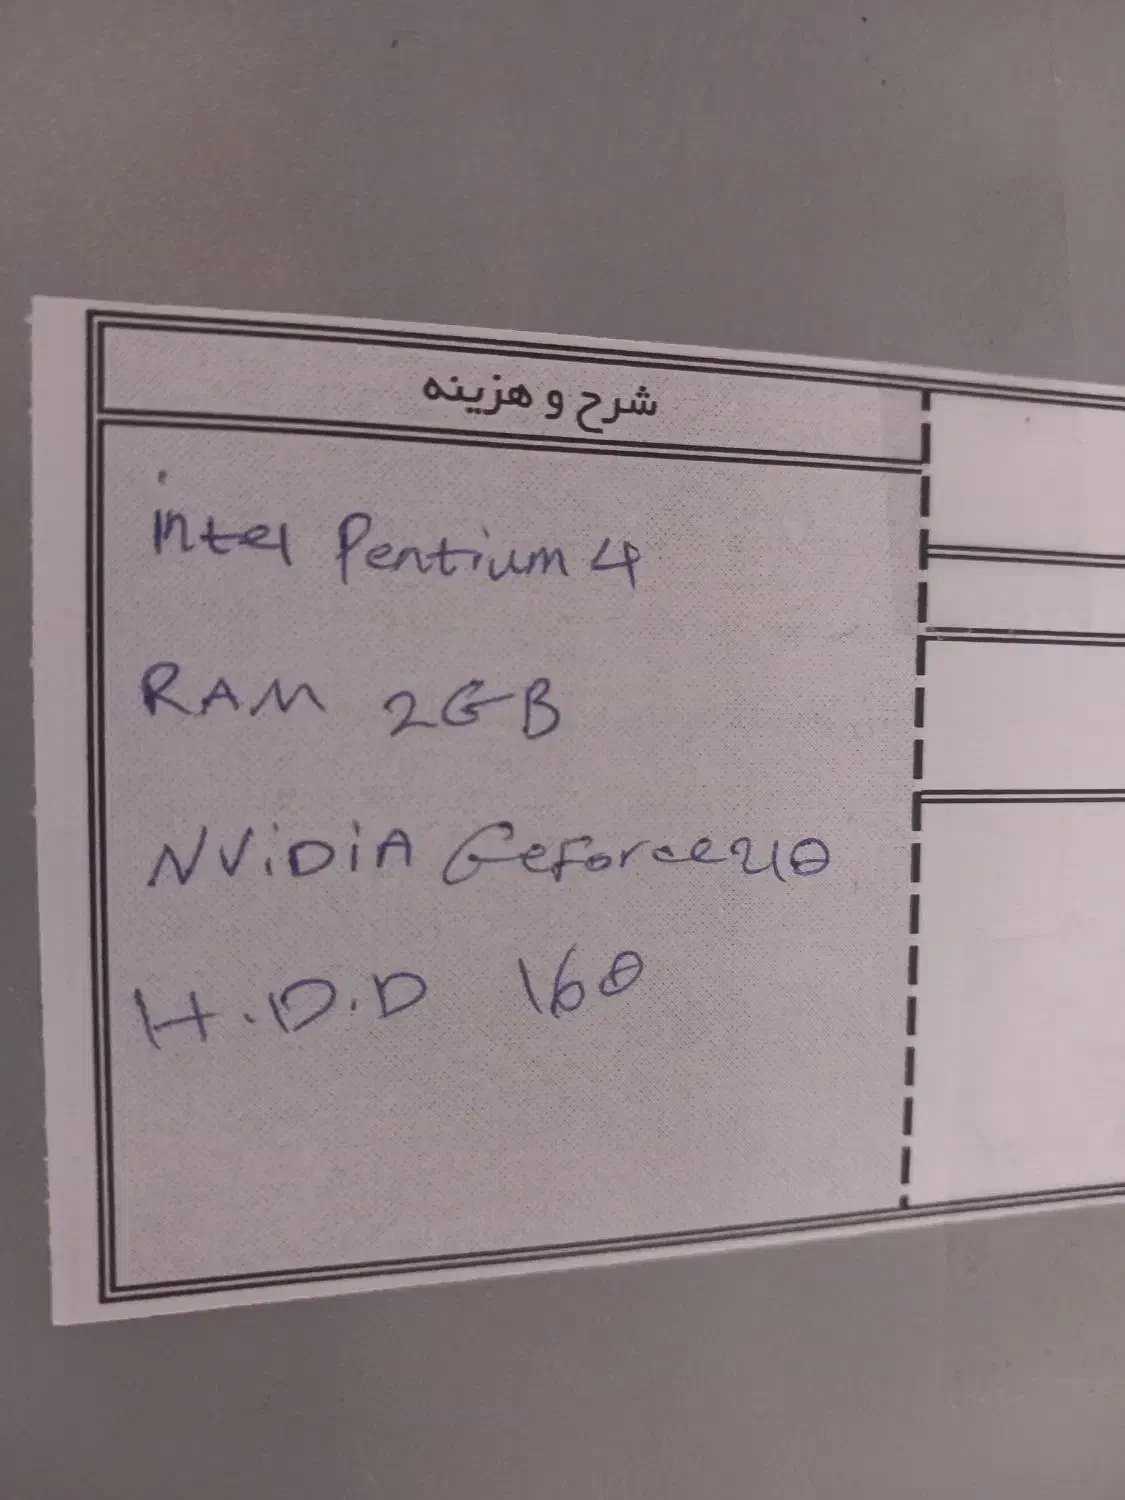 شرح و هزینه
intel Pentium 4
RAM 2GB
NViDiA Geforce 210
H.D.D 160